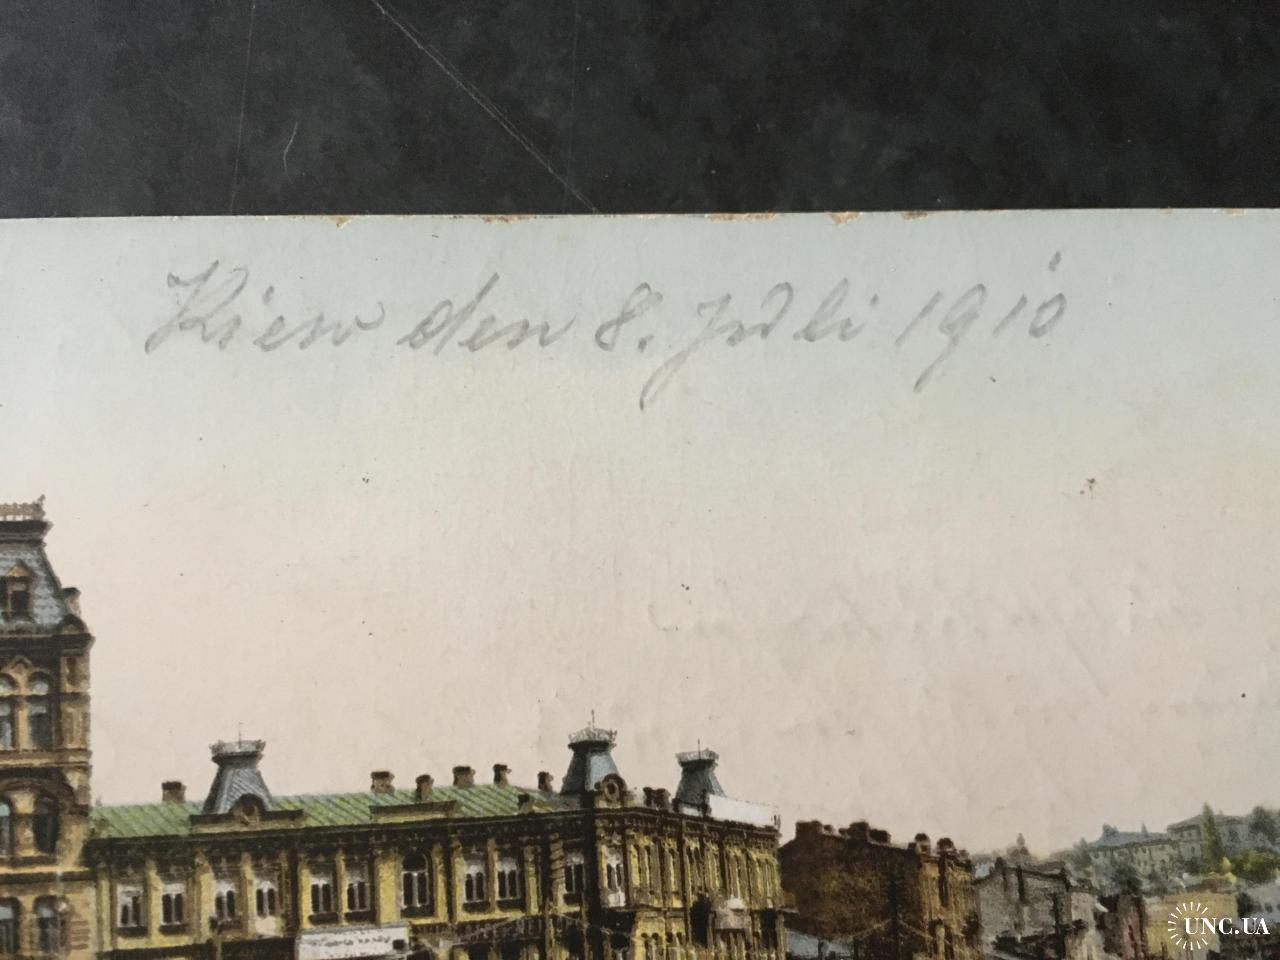 Kiew den 8. Juli 1910
UNC.UA